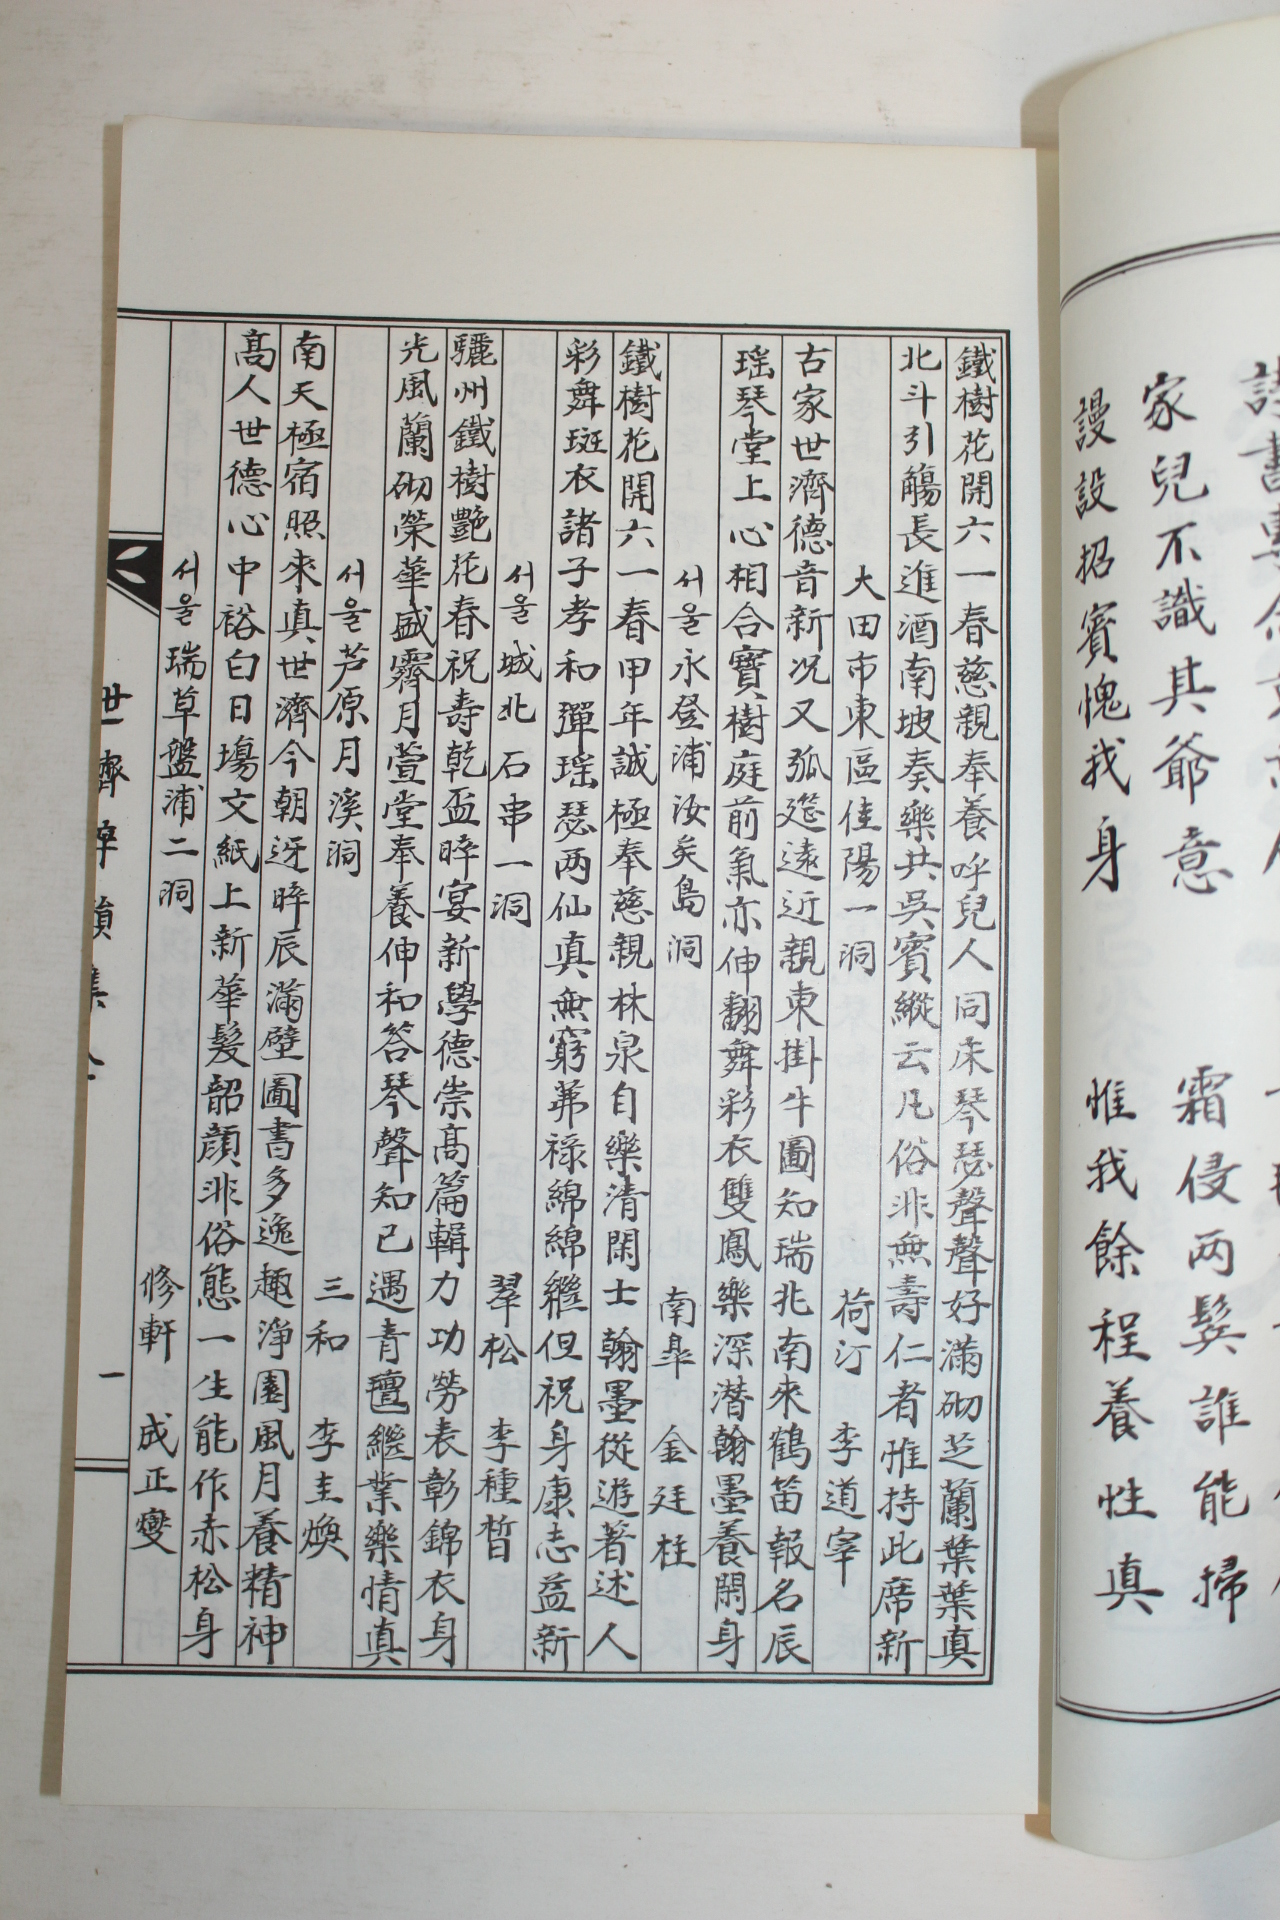 家兒不識其爺意 霜侵两鬂誰能掃
謾設招賓愧我身 惟我餘程養性真
鐵樹花開六一春慈親奉養呼兒人同床琴瑟聲聲好滿砌芝蘭葉葉真
北斗引觴長進酒南坡奏樂共吳賓縱云凡俗非無壽仁者惟持此席新
大田市東區佳陽一洞 荷汀 李道宰
古家世濟德音新况又弧筵遠近親東掛牛圖知瑞兆南來鶴笛報名辰
瑤琴堂上心相合寶樹庭前氣亦伸翻舞彩衣雙鳳樂深潛翰墨養閑身
서울永登浦汝矣島洞 南皐 金廷桂
鐵樹花開六一春甲年誠極奉慈親林泉自樂清閑士翰墨從遊著述人
彩舞斑衣諸子孝和彈瑤瑟两仙真無窮茀祿綿綿繼但祝身康志益新
서울城北石串一洞 翠松 李種晳
驪州鐵樹艷花春祝壽乾盃晬宴新學德崇高篇輯力功勞表彰錦衣身
光風蘭砌榮華盛霽月萱堂奉養伸和答琴聲知己遇青氊繼業樂情真
서울芦原月溪洞 三和 李圭煥
南天極宿照來真世濟今朝迓晬辰滿壁圖書多逸趣淨園風月養精神
高人世德心中裕白日塲文紙上新華髮韶顔非俗態一生能作赤松身
서울瑞草盤浦二洞 修軒 成正燮
世濟晬韻集 一